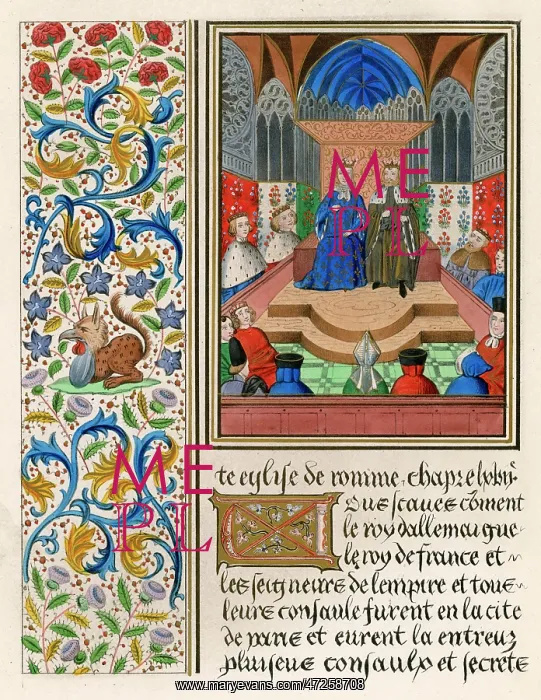 ME
PL
ME
PL
te eglise de romme, chapre lxxviijᵉ
Ous scaues cōment
le roy dallemaigne
le roy de france et
les seigneurs de lempire et tous
leurs consaulx furent en la cite
de paris et eurent la entreux
pluiseurs consaulx et secrets
www.maryevans.com/47258708